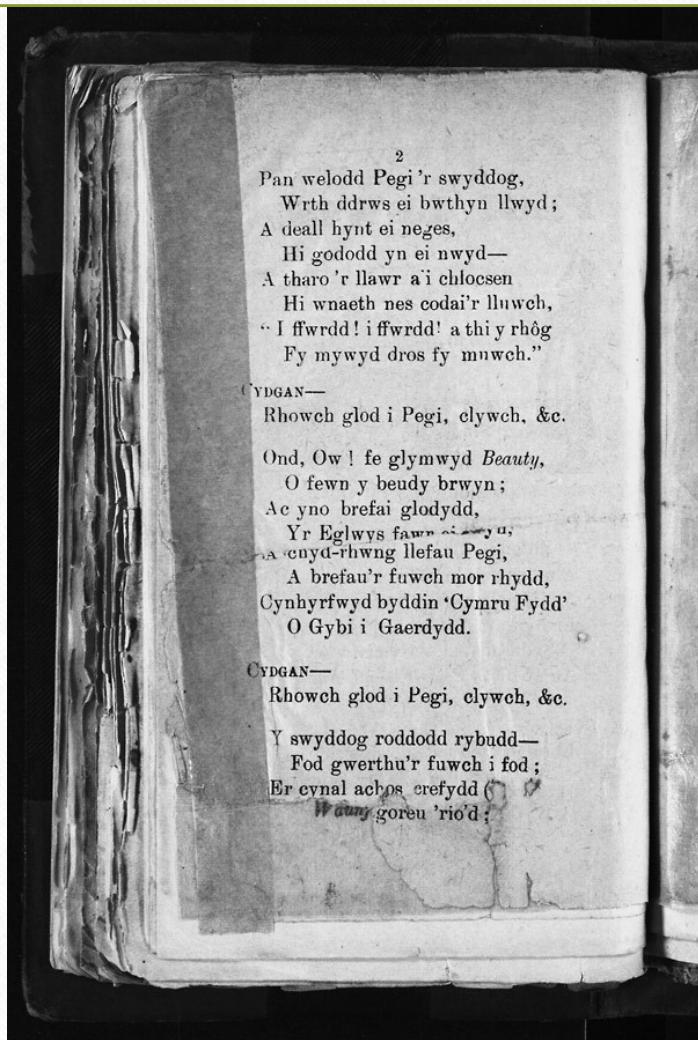 2
Pan welodd Pegi 'r swyddog,
Wrth ddrws ei bwthyn llwyd;
A deall hynt ei neges,
Hi gododd yn ei nwyd—
A tharo 'r llawr a'i chlocsen
Hi wnaeth nes codai'r llnwch,
“ I ffwrdd! i ffwrdd! a thi y rhôg
Fy mywyd dros fy mnwch.”
CYDGAN—
Rhowch glod i Pegi, clywch, &c.
Ond, Ow! fe glymwyd Beauty,
O fewn y beudy brwyn;
Ac yno brefai glodydd,
Yr Eglwys fawr
A cnyd-rhwng llefau Pegi,
A brefau'r fuwch mor rhydd,
Cynhyrfwyd byddin ‘Cymru Fydd’
O Gybi i Gaerdydd.
CYDGAN—
Rhowch glod i Pegi, clywch, &c.
Y swyddog roddodd rybudd—
Fod gwerthu'r fuwch i fod;
Er cynal achos crefydd
goreu 'rio'd;